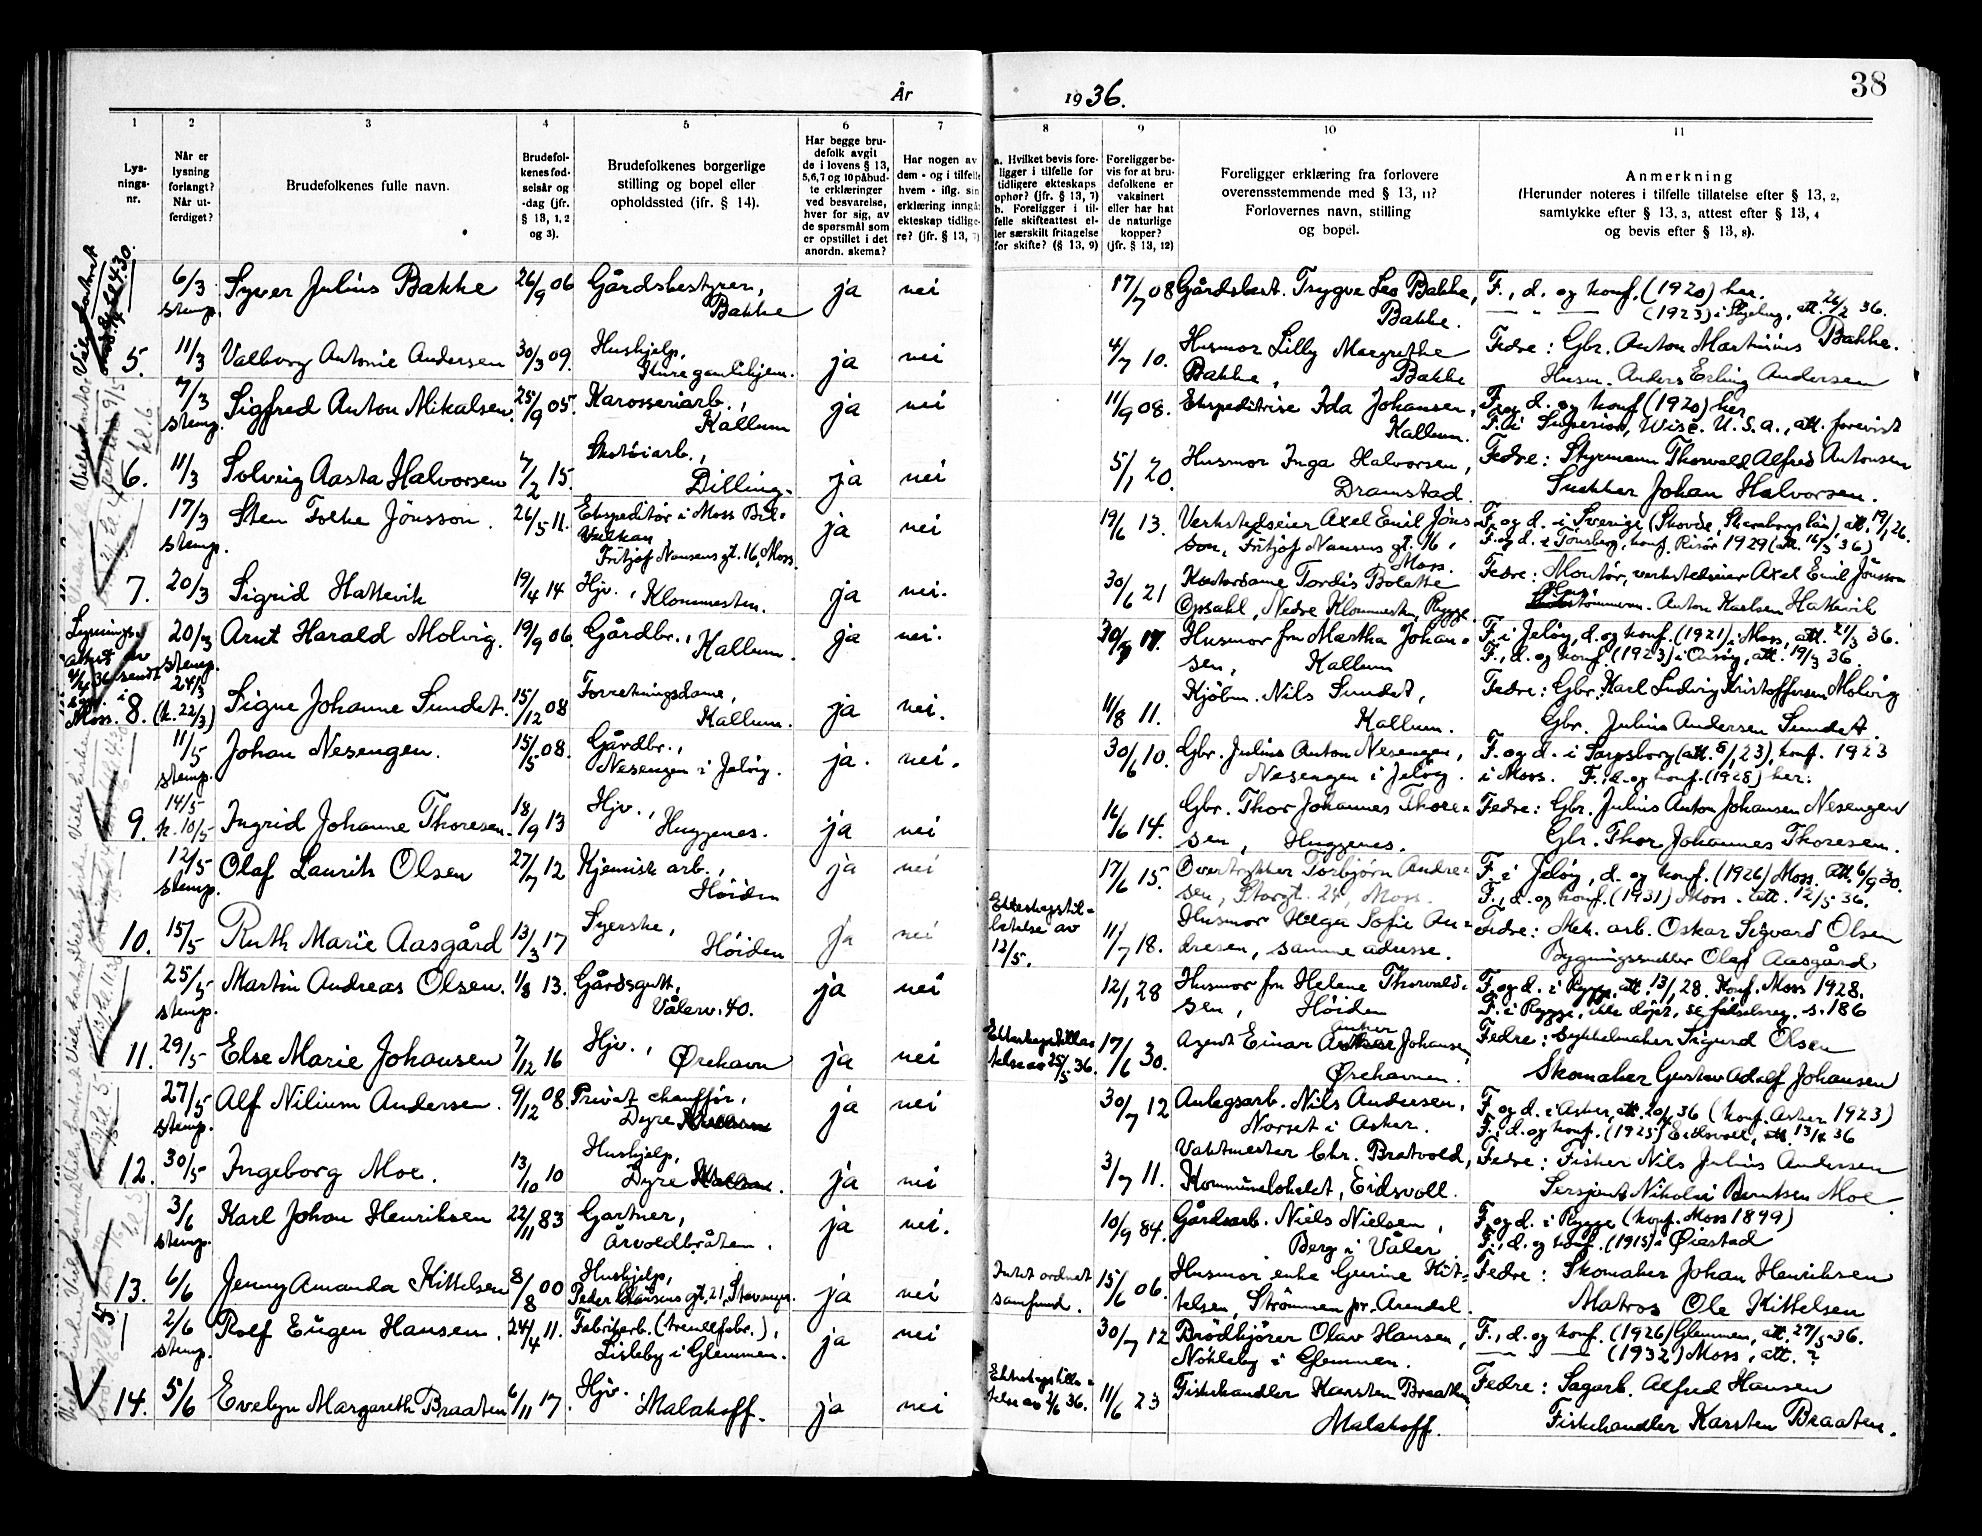 38
År 1936.
1 2 3 4 5 6 7 8 9 10 11
Lys-
nings-
nr.
Når er
lysning
forlangt?
Når ut-
ferdiget?
Brudefolkenes fulle navn.
Brudefol-
kenes fød-
selsår og
-dag (jfr.
§ 13, 1, 2
og 3).
Brudefolkenes borgerlige
stilling og bopel eller
opholdssted (jfr. § 14).
Har begge bru-
defolk avgit
de i lovens § 13,
5, 6, 7 og 10 påbud-
te erklæringer
ved besvarelse,
hver for sig, av
de spørsmål som
er opstillet i det
anordn. skema?
Har nogen av
dem - og i tilfelle
hvem - iflg. sin
erklæring inngått
ekteskap tidlige-
re? (jfr. § 13, 7)
a. Hvilket bevis fore-
ligger i tilfelle for
tidligere ekteskaps
ophør? (jfr. § 13, 7)
b. Foreligger i til-
felle skifteattest el-
ler særskilt fritagelse
for skifte? (§ 13, 9)
Foreligger be-
vis for at bru-
defolkene er
vaksinert
eller har hat
de naturlige
kopper?
(jfr. § 13, 12)
Foreligger erklæring fra forlovere
overensstemmende med § 13, 11?
Forlovernes navn, stilling
og bopel.
Anmerkning
(Herunder noteres i tilfelle tillatelse efter § 13, 2,
samtykke efter § 13, 3, attest efter § 13, 4
og bevis efter § 13, 8).
6/3 stemp. Syver Julius Bakke 26/9 06 Gårdsbestyrer, Bakke ja nei 17/7 08 Gårdsbest. Trygve Leo Bakke, Bakke. F., d. og konf. (1920) her.
(1923) i Skjeberg, att. 26/2 36.
5. 11/3 Valborg Antonie Andersen 30/3 09. Hushjelp, gamlehjem. ja nei 4/7 10. Husmor Lilly Margrethe Bakke, Bakke Fedre: Gbr. Anton Martinius Bakke.
Husm. Anders Erling Andersen
7/3 stemp. Sigfred Anton Mikalsen 25/9 05. Karosseriarb., Kallum ja nei 11/9 08. Ekspeditrise Ida Johansen, Kallum. F. og d. og konf. (1920) her
F. i Superior, Wisc. U.S.A., att. forevist
6. 11/3 Solveig Aasta Halvorsen 7/2 15. Skotøiarb., Dilling. ja nei 5/1 20. Husmor Inga Halvorsen, Dramstad. Fedre: Styrmann Thorvald Alfred Antonsen
Snekker Johan Halvorsen.
17/3 stemp. Sten Folke Jönsson. 26/5 11. Ekspeditør i Moss Bil-Vulkan Fritjof Nansens gt. 16, Moss. ja nei 19/6 13. Verkstedseier Axel Emil Jöns-son, Fritjof Nansens gt. 16, Moss. F. og d. i Sverige (Skövde, Skaraborgs län) att. 19/1 26.
F. og d. i Tønsberg, konf. Risør 1929 (att. 16/3 36)
7. 20/3 Sigrid Hattevik 19/4 14 Hjv., Klommesten. ja nei. 30/6 21 Kontordame Tordis Opsahl, Nedre Klommesten, Rygge Fedre: Montør, verkstedseier Axel Emil Jönsson
tömmerm. Anton Karlsen Hattevik
Lysnings-
attest av
4/4 36 sendt
i
Moss.
20/3 stemp. Arnt Harald Molvig. 19/9 06. Gårdbr., Kallum. ja nei. 30/7 17. Husmor fru Martha Johan-sen, Kallum F. i Jeløy, d. og konf. (1921) i Moss, att. 21/3 36.
F., d. og konf. (1923) i Onsøy, att. 19/3 36.
8. 24/3 (k. 22/3) Signe Johanne Sundet. 15/12 08 Forretningsdame, Kallum. ja nei. 11/8 11. Kjøbm. Nils Sundet, Kallum. Fedre: Gbr. Karl Ludvig Kristoffersen Molvig
Gbr. Julius Andersen Sundet.
11/5 stemp. Johan Nesengen. 15/5 08. Gårdbr., Nesengen i Jeløy. ja. nei. 30/6 10. Gbr. Julius Anton Nesengen, Nesengen i Jeløy. F. og d. i Sarpsborg (att. 5/1 23), konf. 1923
i Moss. F., d. og konf. (1928) her.
9. 14/5 k. 10/5 Ingrid Johanne Thoresen. 18/9 13 Hjv., Huggenes. ja nei 16/6 14. Gbr. Thor Johannes Thore-sen, Huggenes. Fedre: Gbr. Julius Anton Johansen Nesengen
Gbr. Thor Johannes Thoresen.
12/5 stemp. Olaf Laurits Olsen 27/7 12 Kjemisk arb., Höiden ja nei 17/6 15. Overtrykker Torbjørn Andre-sen, Storgt. 24, Moss. F. i Jeløy, d. og konf. (1926) Moss. att. 6/9 30.
F., d. og konf. (1931) Moss. att. 12/5 36.
10. 15/5 Ruth Marie Aasgård 13/3 17 Syerske, Höiden ja nei Ekteskapstil-latelse av 12/5. 11/7 18. Husmor Helga Sofie An-dresen, samme adresse. Fedre: Mek. arb. Oskar Sigvard Olsen
Bygningssnekker Olaf Aasgård
25/5 stemp. Martin Andreas Olsen. 1/8 13. Gårdsgutt, Vålerv. 40. ja nei 12/1 28 Husmor fru Helene Thorvald-sen, Höiden F. og d. i Rygge, att. 13/1 28. Konf. Moss 1928.
F. i Rygge, ikke døpt, se fødselsreg. s. 186
11. 29/5 Else Marie Johansen 7/12 16 Hjv., Ørehavn ja nei Ekteskapstilla-telse av 25/5 36. 17/6 30. Agent Einar Anker Johansen, Ørehavnen. Fedre: Sykkelmaker Sigurd Olsen
Skomaker Gustav Adolf Johansen
27/5 stemp. Alf Nilium Andersen. 9/12 08. Privat chauffør, Dyre ja nei 30/7 12 Anlegsarb. Nils Andersen, Norset i Asker. F. og d. i Asker, att. 20/4 36 (konf. Asker 1923)
F., d. og konf. (1925) Eidsvoll, att. 13/4 36
12. 30/5 Ingeborg Moe. 13/10 10 Hushjelp, Dyre ja nei 3/7 11. Vaktmester Chr. Bratvold, Kommunelokalet, Eidsvoll. Fedre: Fisker Nils Julius Andersen
Sersjant Nikolai Berntsen Moe
3/6 stemp. Karl Johan Henriksen 22/11 83 Gartner, Årvoldbråten. ja nei. 10/9 84. Gårdsarb. Niels Nielsen, Berg i Våler. F. og d. i Rygge (konf. Moss 1899)
F., d. og konf. (1915) i Øiestad
13. 6/6 Jenny Amanda Kittelsen 8/8 00 Hushjelp, Peder Clausens gt. 21, Stavanger. ja nei Intet ordnet samfund. 15/6 06. Husmor enke Gurine Kit-telsen, Strömmen pr. Arendal. Fedre: Skomaker Johan Henriksen
Matros Ole Kittelsen
2/6 stemp. Rolf Eugen Hansen. 24/4 11. Fabrikarb. (trevarefabr.), Lisleby i Glemmen. ja nei 30/7 12 Brödkjører Olav Hansen, Nökleby i Glemmen. F., d. og konf. (1926) Glemmen, att. 27/5 36.
(1932) Moss, att. ?
14. 5/6 Evelyn Margareth Braaten 6/11 17. Hjv. Malakoff. ja nei Ekteskapstilla-telse av 2/6 36. 11/6 23 Fiskehandler Karsten Braaten, Malakoff. Fedre: Sagarb. Alfred Hansen
Fiskehandler Karsten Braaten.